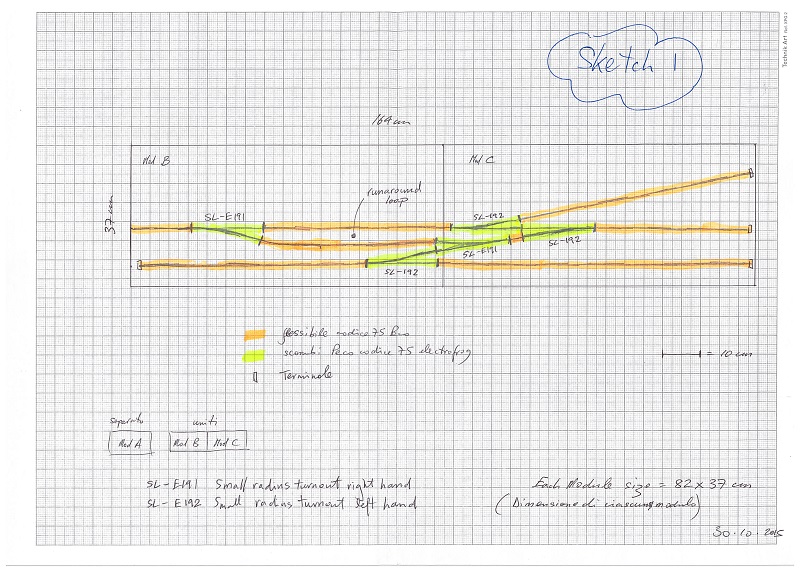 Sketch 1
164 cm
Mod B
Mod C
37 cm
runaround
loop
SL-E191
SL-192
SL-192
SL-E191
SL-192
flessibile codice 75 Peco
scambi Peco codice 75 electrofrog
Terminale
= 10 cm
separato
uniti
Mod A
Mod B
Mod C
SL-E191 Small radius turnout right hand
SL-E192 Small radius turnout left hand
Each Module size = 82 x 37 cm
(Dimensione di ciascun modulo)
30.10.2015